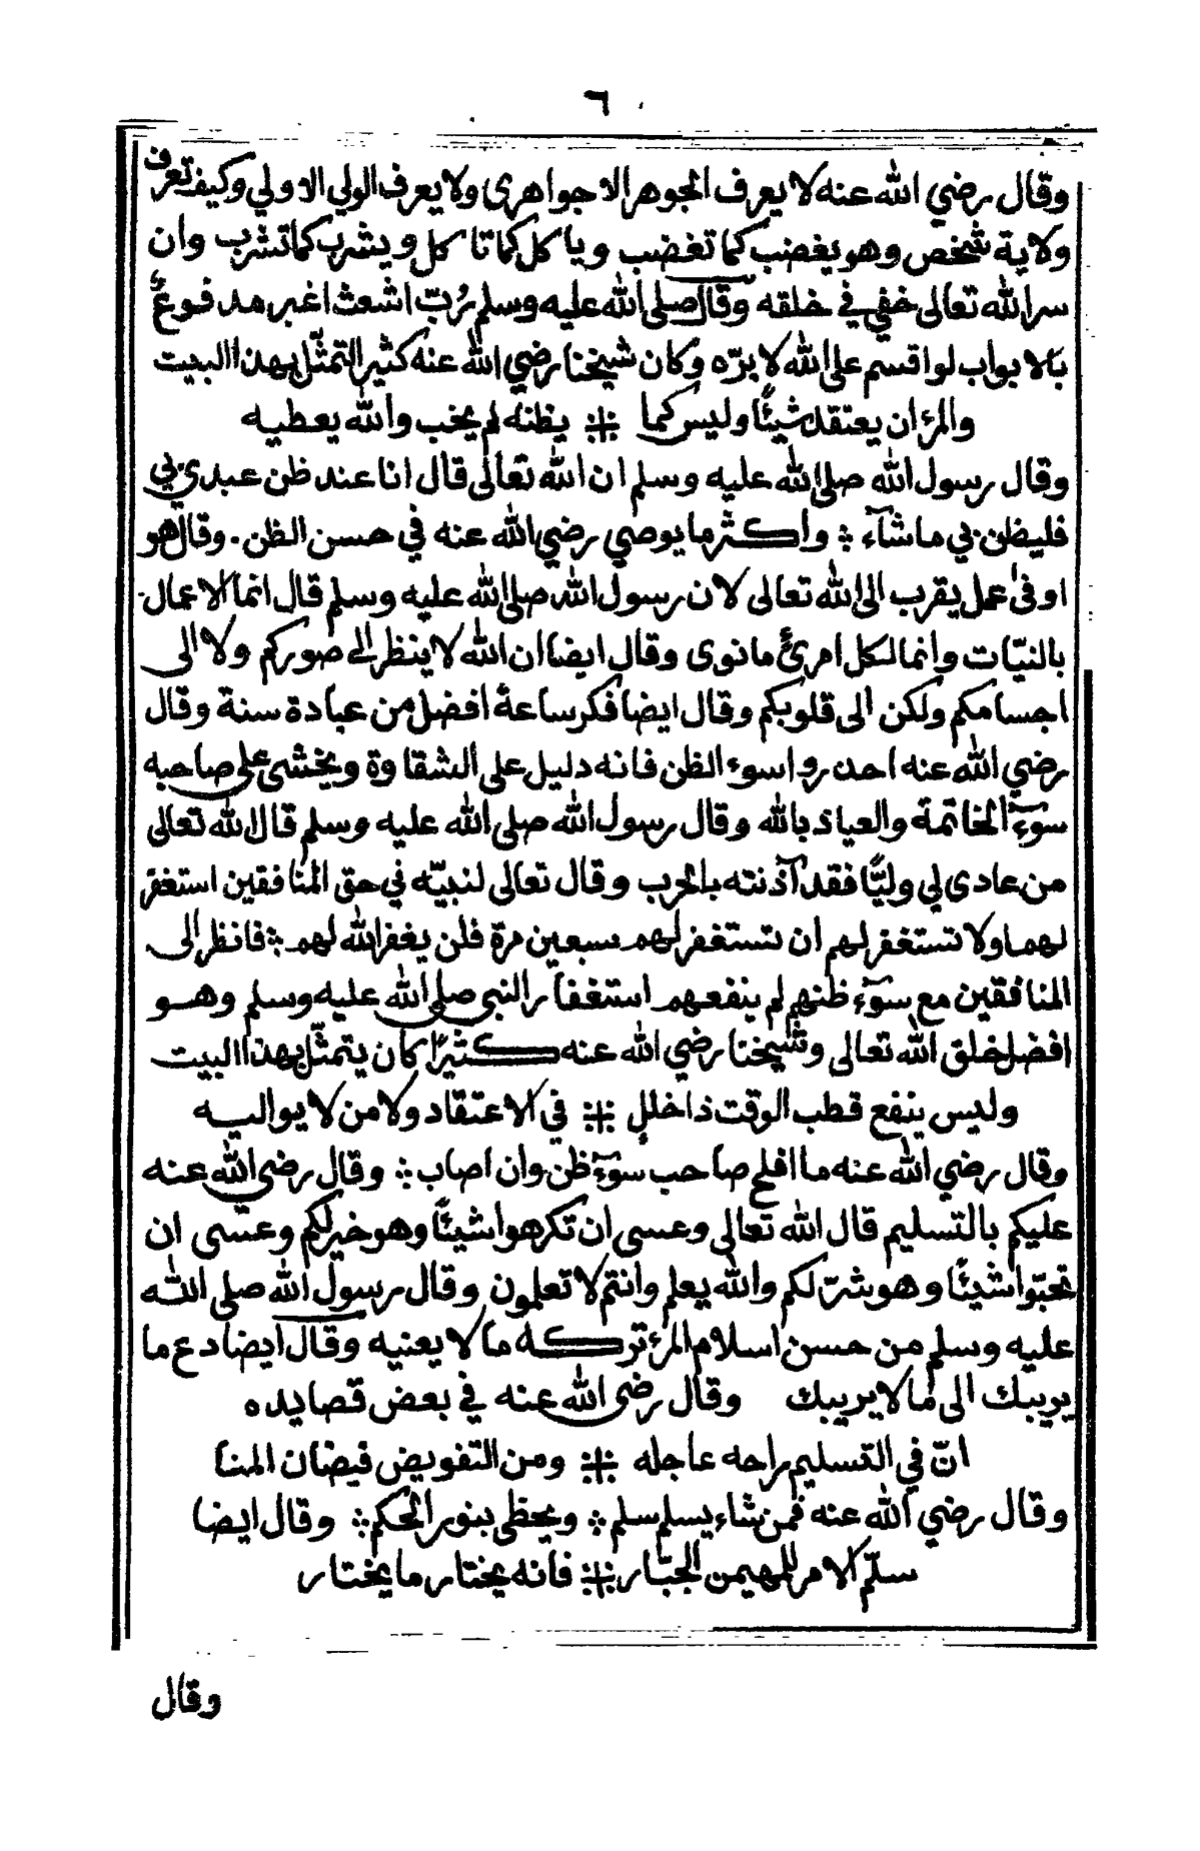 ٦
وقال رضي الله عنه لا يعرف الجوهر الا جواهرى ولا يعرف الولي الا ولي وكيف تعرف
ولاية شخص وهو يغضب كما تغضب ويا كل كما تا كل ويشرب كما تشرب وان
سر الله تعالى خفي في خلقه وقال صلى الله عليه وسلم رُبّ اشعث اغبر مدفوعٌ
بالابواب لو اقسم على الله لابرّه وكان شيخنا رضي الله عنه كثير التمثّل بهذا البيت
والمرٔ ان يعتقد شيئًا وليس كما ⁜ يظنه لم يخب والله يعطيه
وقال رسول الله صلى الله عليه وسلم ان الله تعالى قال انا عند ظن عبدي بي
فليظن بي ما شآء ؞ واكثر ما يوصي رضي الله عنه في حسن الظن. وقال هو
اوفىٰ عمل يقرب الى الله تعالى لان رسول الله صلى الله عليه وسلم قال انما الاعمال
بالنيّات وإنما لكل امرئٍ ما نوى وقال ايضا ان الله لا ينظر الى صوركم ولا الى
اجسامكم ولكن الى قلوبكم وقال ايضا فكر ساعة افضل من عبادة سنة وقال
رضي الله عنه احذروا سوء الظن فانه دليل على الشقاوة ويخشى على صاحبه
سوٓء الخاتمة والعياذ بالله وقال رسول الله صلى الله عليه وسلم قال الله تعالى
من عادى لي وليًّا فقد آذنته بالحرب وقال تعالى لنبيّه في حق المنافقين استغفر
لهم او لا تستغفر لهم ان تستغفر لهم سبعين مرة فلن يغفر الله لهم ؞ فانظر الى
المنافقين مع سوٓء ظنهم لم ينفعهم استغفار النبي صلى الله عليه وسلم وهو
افضل خلق الله تعالى وشيخنا رضي الله عنه كثيرًا كان يتمثّل بهذا البيت
وليس ينفع قطب الوقت ذا خللٍ ⁜ في الاعتقاد ولا من لا يواليه
وقال رضي الله عنه ما افلح صاحب سوٓء ظن وان اصاب ؞ وقال رضي الله عنه
عليكم بالتسليم قال الله تعالى وعسى ان تكرهوا شيئًا وهو خير لكم وعسى ان
تحبّوا شيئًا وهو شرّ لكم والله يعلم وانتم لا تعلمون وقال رسول الله صلى الله
عليه وسلم من حسن اسلام المرٔ تركه ما لا يعنيه وقال ايضا دع ما
يريبك الى ما لا يريبك وقال رضي الله عنه في بعض قصايده
انّ في التسليم راحه عاجله ⁜ ومن التفويض فيضان المنا
وقال رضي الله عنه فمن شاء يسلم سلم ؞ ويحظى بنور الحكم ؞ وقال ايضا
سلّم الامر للمهيمن الجبّار ⁜ فانه يختار ما يختار
وقال